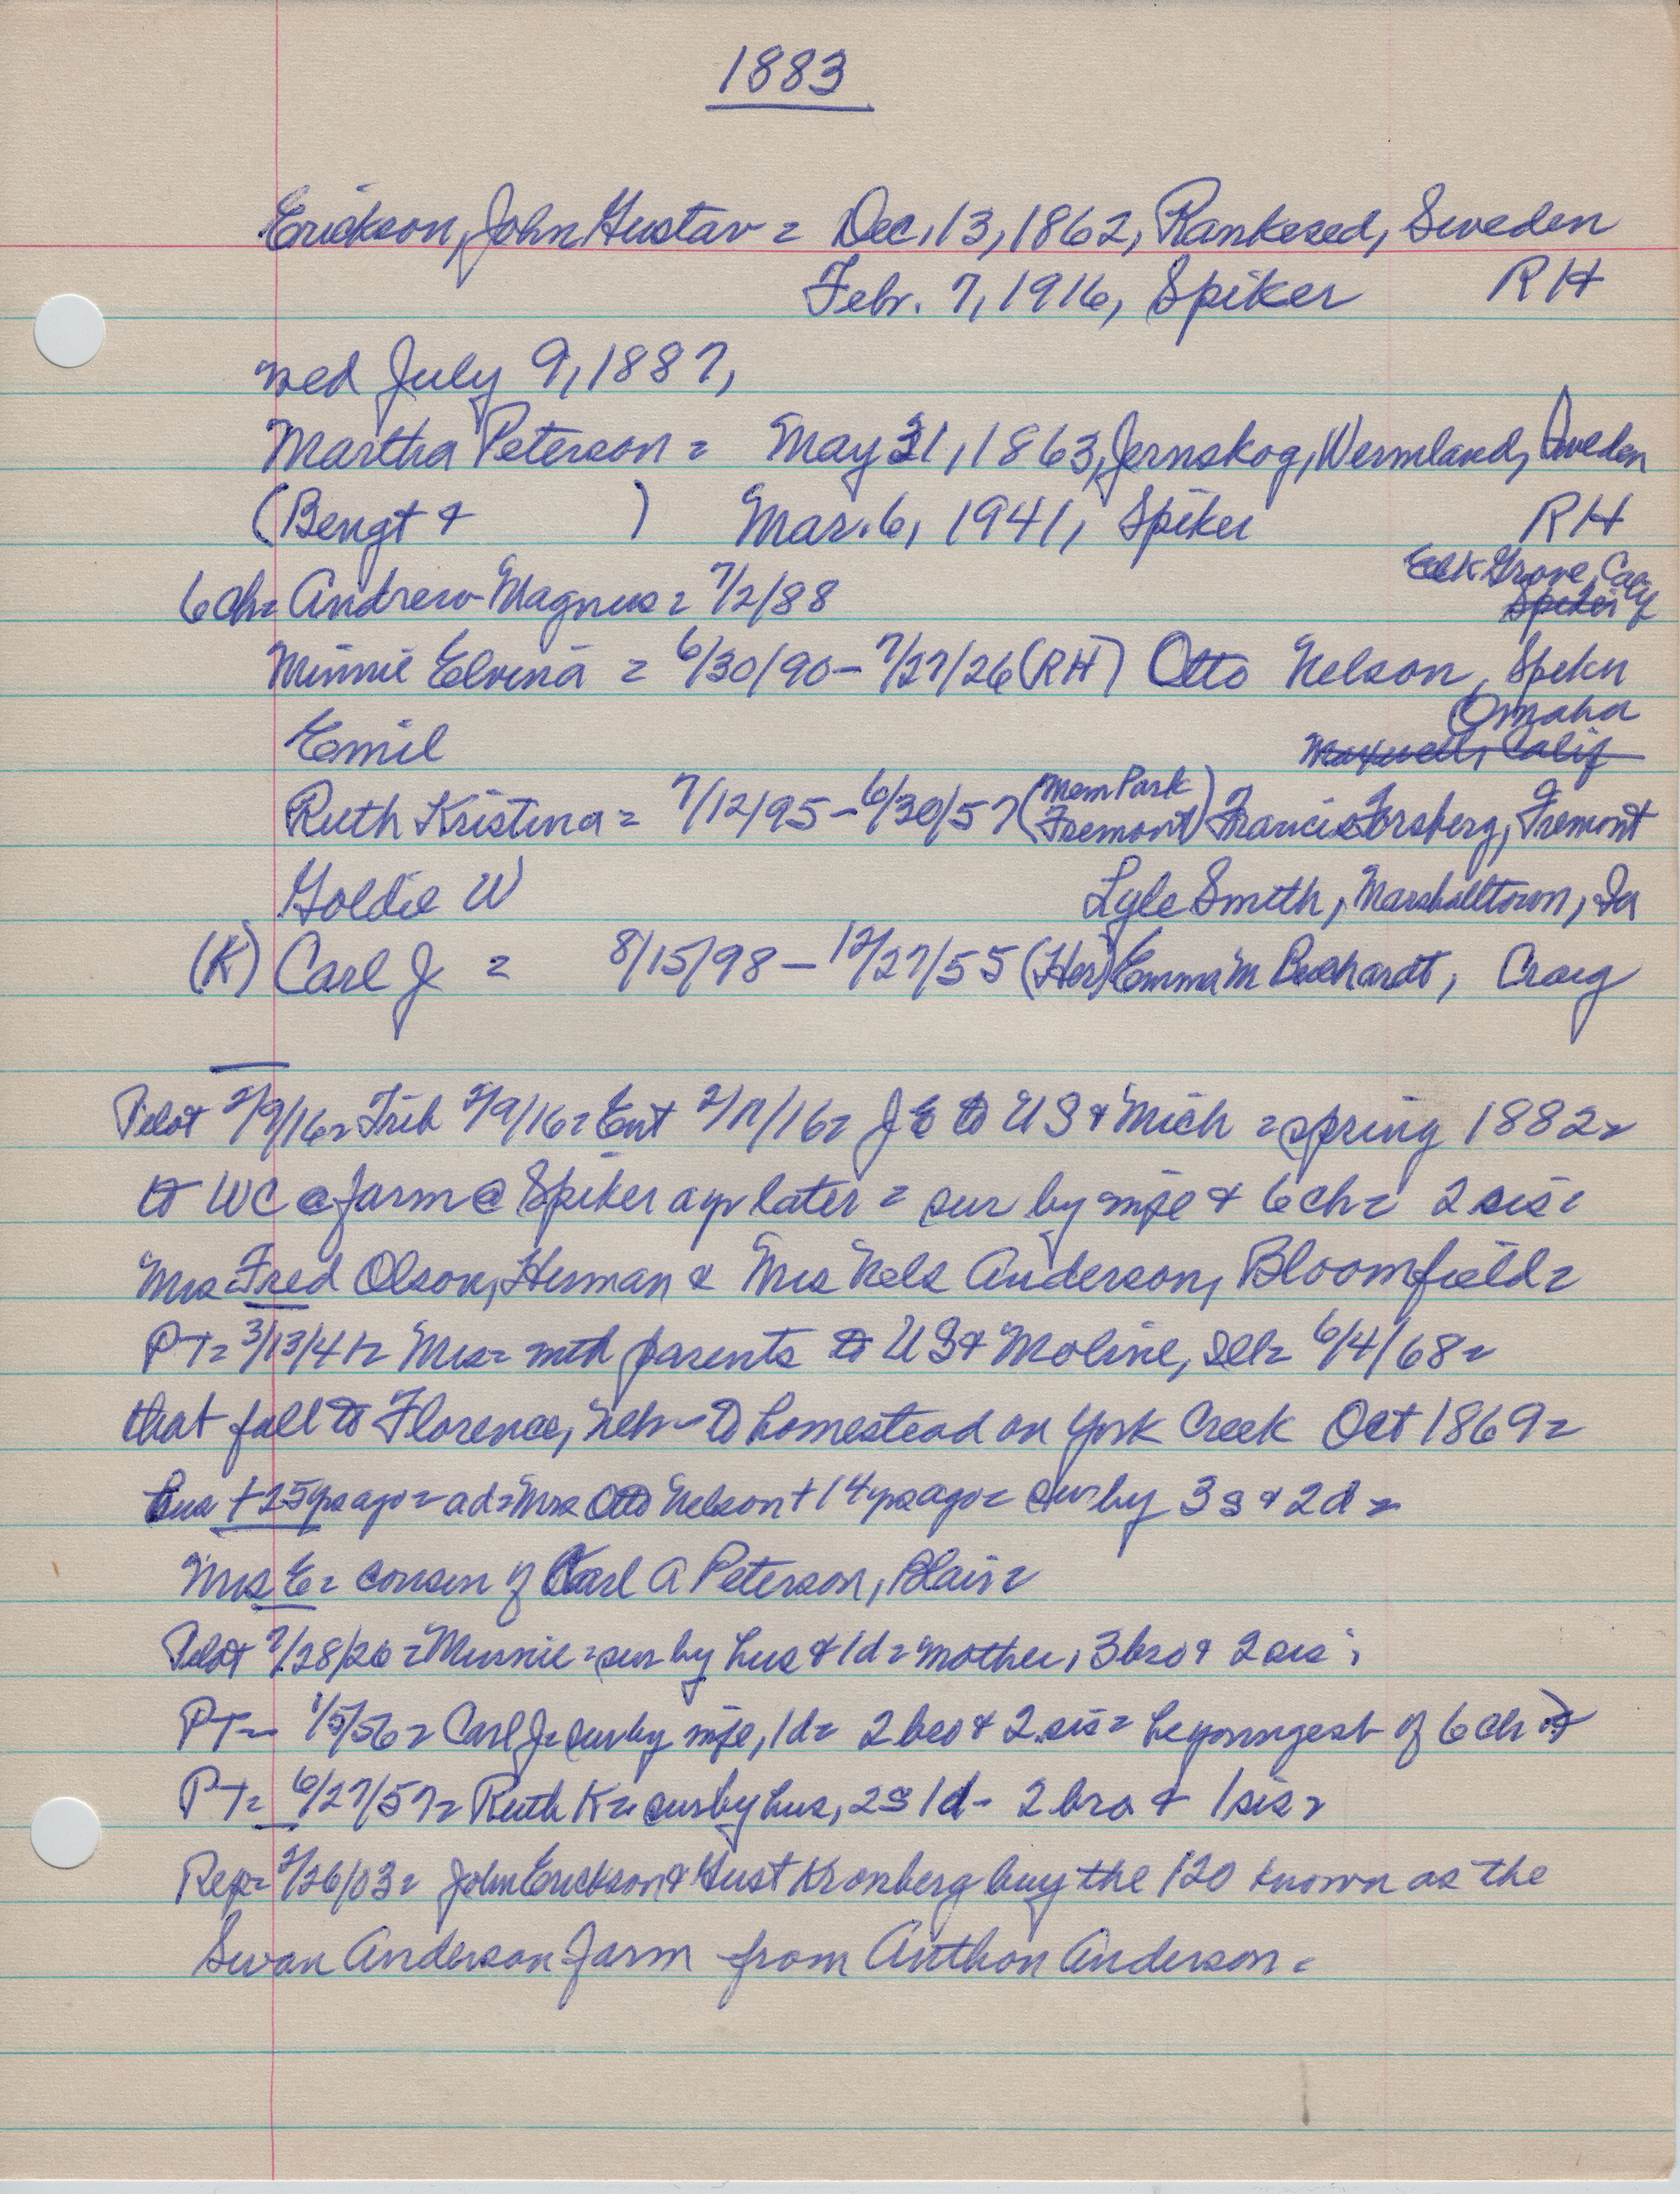 1883
Erickson, John Gustav = Dec. 13, 1862, Rankesed, Sweden
Febr. 7, 1916, Spiker RH
wed July 9, 1887,
Martha Peterson = May 31, 1863, Jernskog, Wermland, Sweden
(Bengt & ) Mar. 6, 1941, Spiker RH
Elk Grove, Calif
6 ch = Andrew Magnus = 7/2/88 Spiker
Minnie Elvina = 6/30/90 - 7/27/26 (RH) Otto Nelson, Spiker
Omaha
Emil Maxwell, Calif
Ruth Kristina = 7/12/95 - 6/30/57 (Mem Park Fremont) Francis Forsberg, Fremont
Goldie W Lyle Smith, Marshalltown, Ia
(K) Carl J = 8/15/98 - 12/27/55 (Her) Emma M , Craig
Pilot 2/9/16 = Trib 2/9/16 = Ent 2/11/16 = JE to US & Mich = spring 1882 =
to WC @ farm @ Spiker a yr later = sur by wife & 6 ch = 2 sis =
Mrs Fred Olson, Herman & Mrs Nels Anderson, Bloomfield =
PT = 3/13/41 = Mrs = with parents to US & Moline, Ill = 6/4/68 =
that fall to Florence, Nebr - to homestead on York Creek Oct 1869 =
hus + 25 yrs ago = a d = Mrs Otto Nelson + 14 yrs ago = sur by 3 s & 2 d =
Mrs E = cousin of Karl A Peterson, Blair =
Pilot 7/28/26 = Minnie = sur by hus & 1 d = mother, 3 bro & 2 sis =
PT = 1/5/56 = Carl J = sur by wife, 1 d = 2 bro & 2 sis = he youngest of 6 ch
PT = 6/27/57 = Ruth K = sur by hus, 2 s 1 d - 2 bro & 1 sis =
Rep = 2/26/03 = John Erickson & Gust Kronberg buy the 120 known as the
Swan Anderson farm from Anthon Anderson =